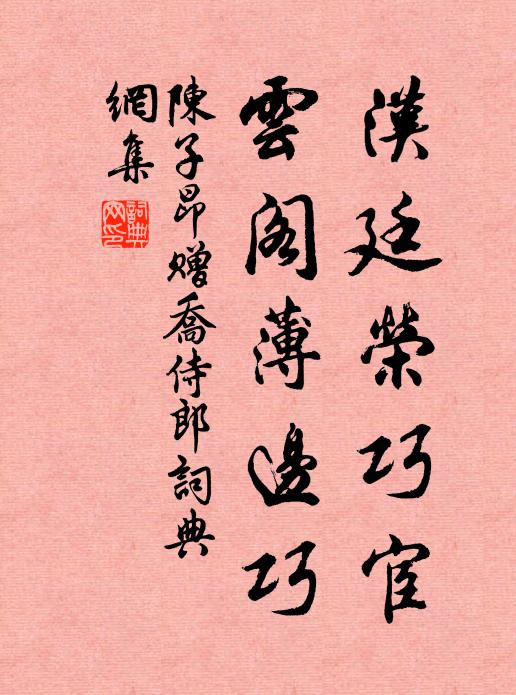 漢廷榮巧宦
雲閣薄邊巧
陳子昂贈喬侍郎詞典
網集
詞典
网印